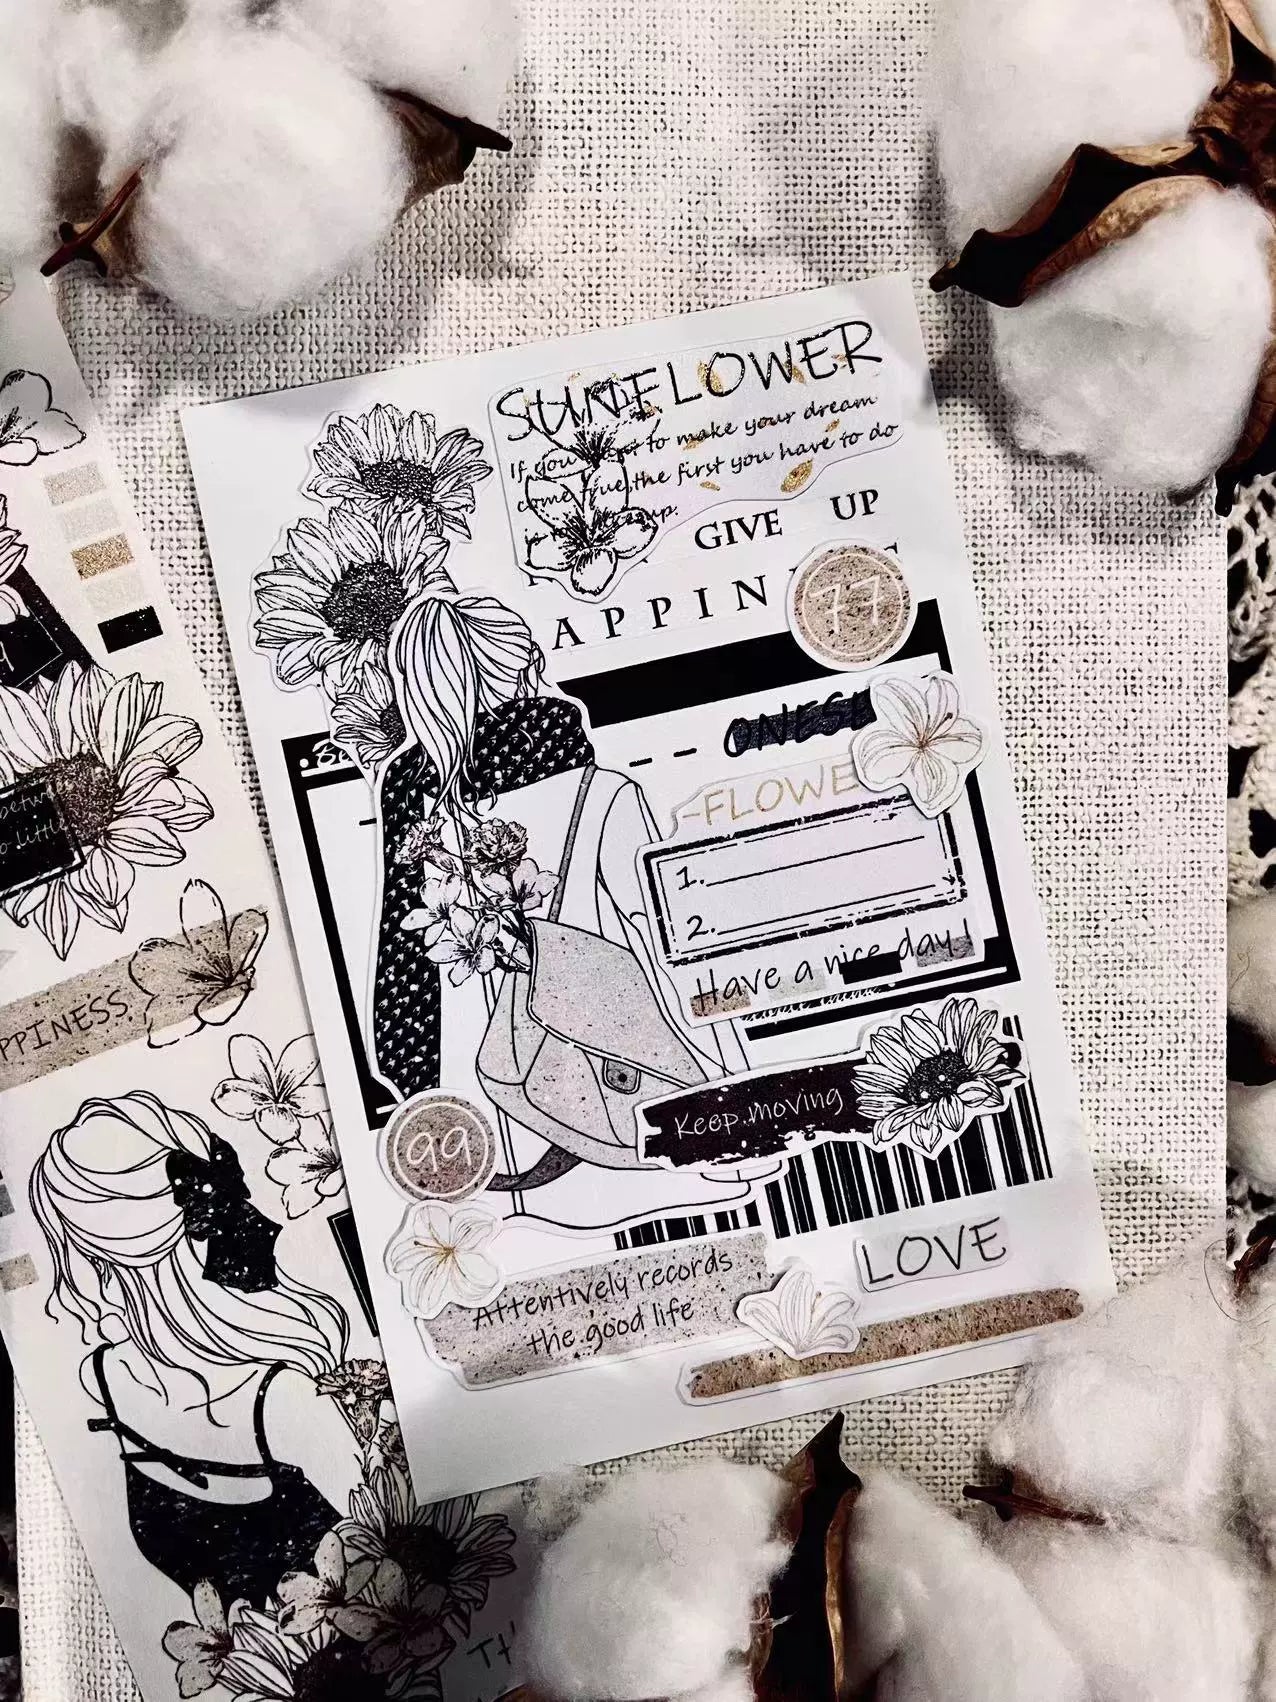 SUNFLOWER
If you to make your dream
come true, the first you have to do
up.
GIVE UP
APPIN
77
ONESE
-FLOWE
1.
2.
Have a nice day!
Keep moving
99
LOVE
Attentively records
the good life
PPINESS